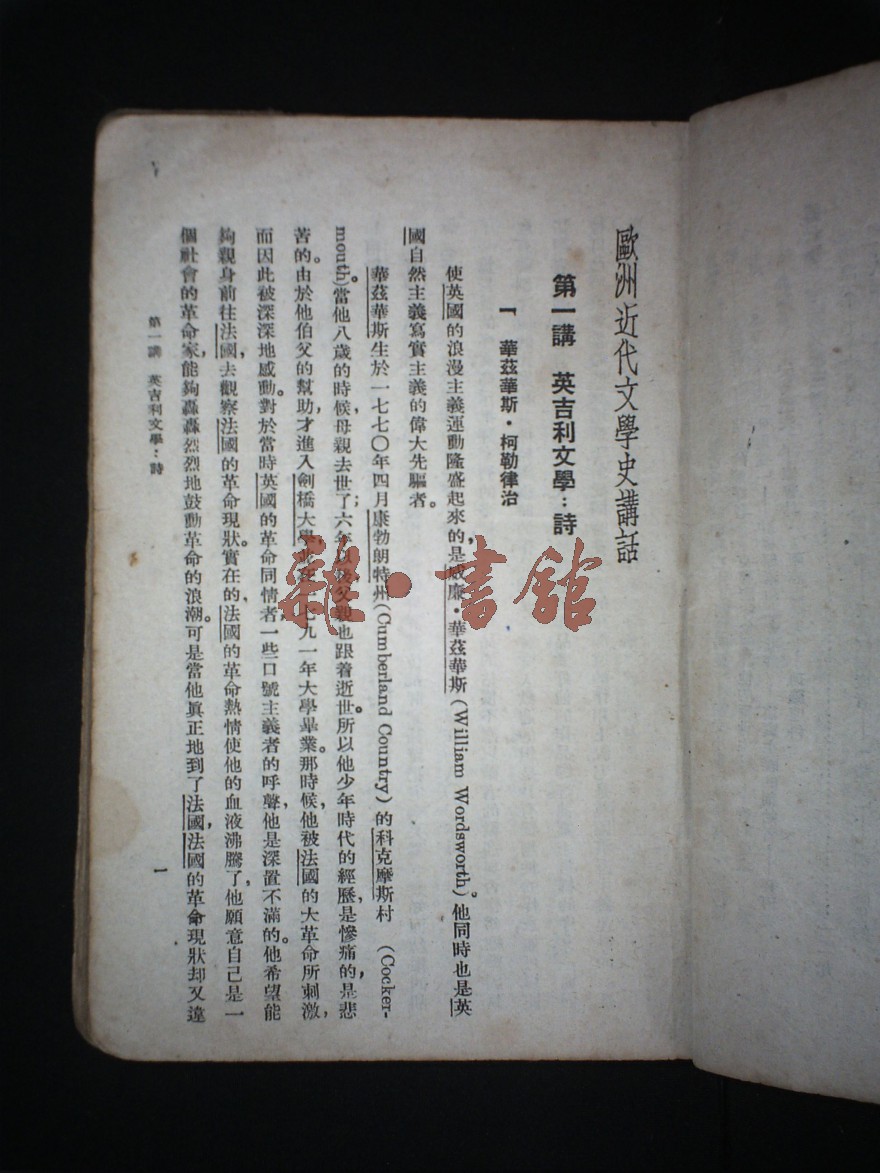 歐洲近代文學史講話
第一講　英吉利文學：詩
一　華茲華斯・柯勒律治
使英國的浪漫主義運動隆盛起來的，是威廉・華茲華斯(William Wordsworth)。他同時也是英
國自然主義寫實主義的偉大先驅者。
華茲華斯生於一七七〇年四月康勃朗特州(Cumberland Country)的科克摩斯村　(Cocker-
mouth)。當他八歲的時候，母親去世了；六年以後，父親也跟着逝世。所以他少年時代的經歷，是慘痛的，是悲
苦的。由於他伯父的幫助，才進入劍橋大學，一七九一年大學畢業。那時候，他被法國的大革命所刺激，
而因此被深深地感動。對於當時英國的革命同情者，一些口號主義者的呼聲，他是深置不滿的。他希望能
夠親身前往法國，去觀察法國的革命現狀。實在的，法國的革命熱情使他的血液沸騰了，他願意自己是一
個社會的革命家，能夠轟轟烈烈地鼓動革命的浪潮。可是當他眞正地到了法國，法國的革命現狀却又違
第一講　英吉利文學：詩
一
雜・書館